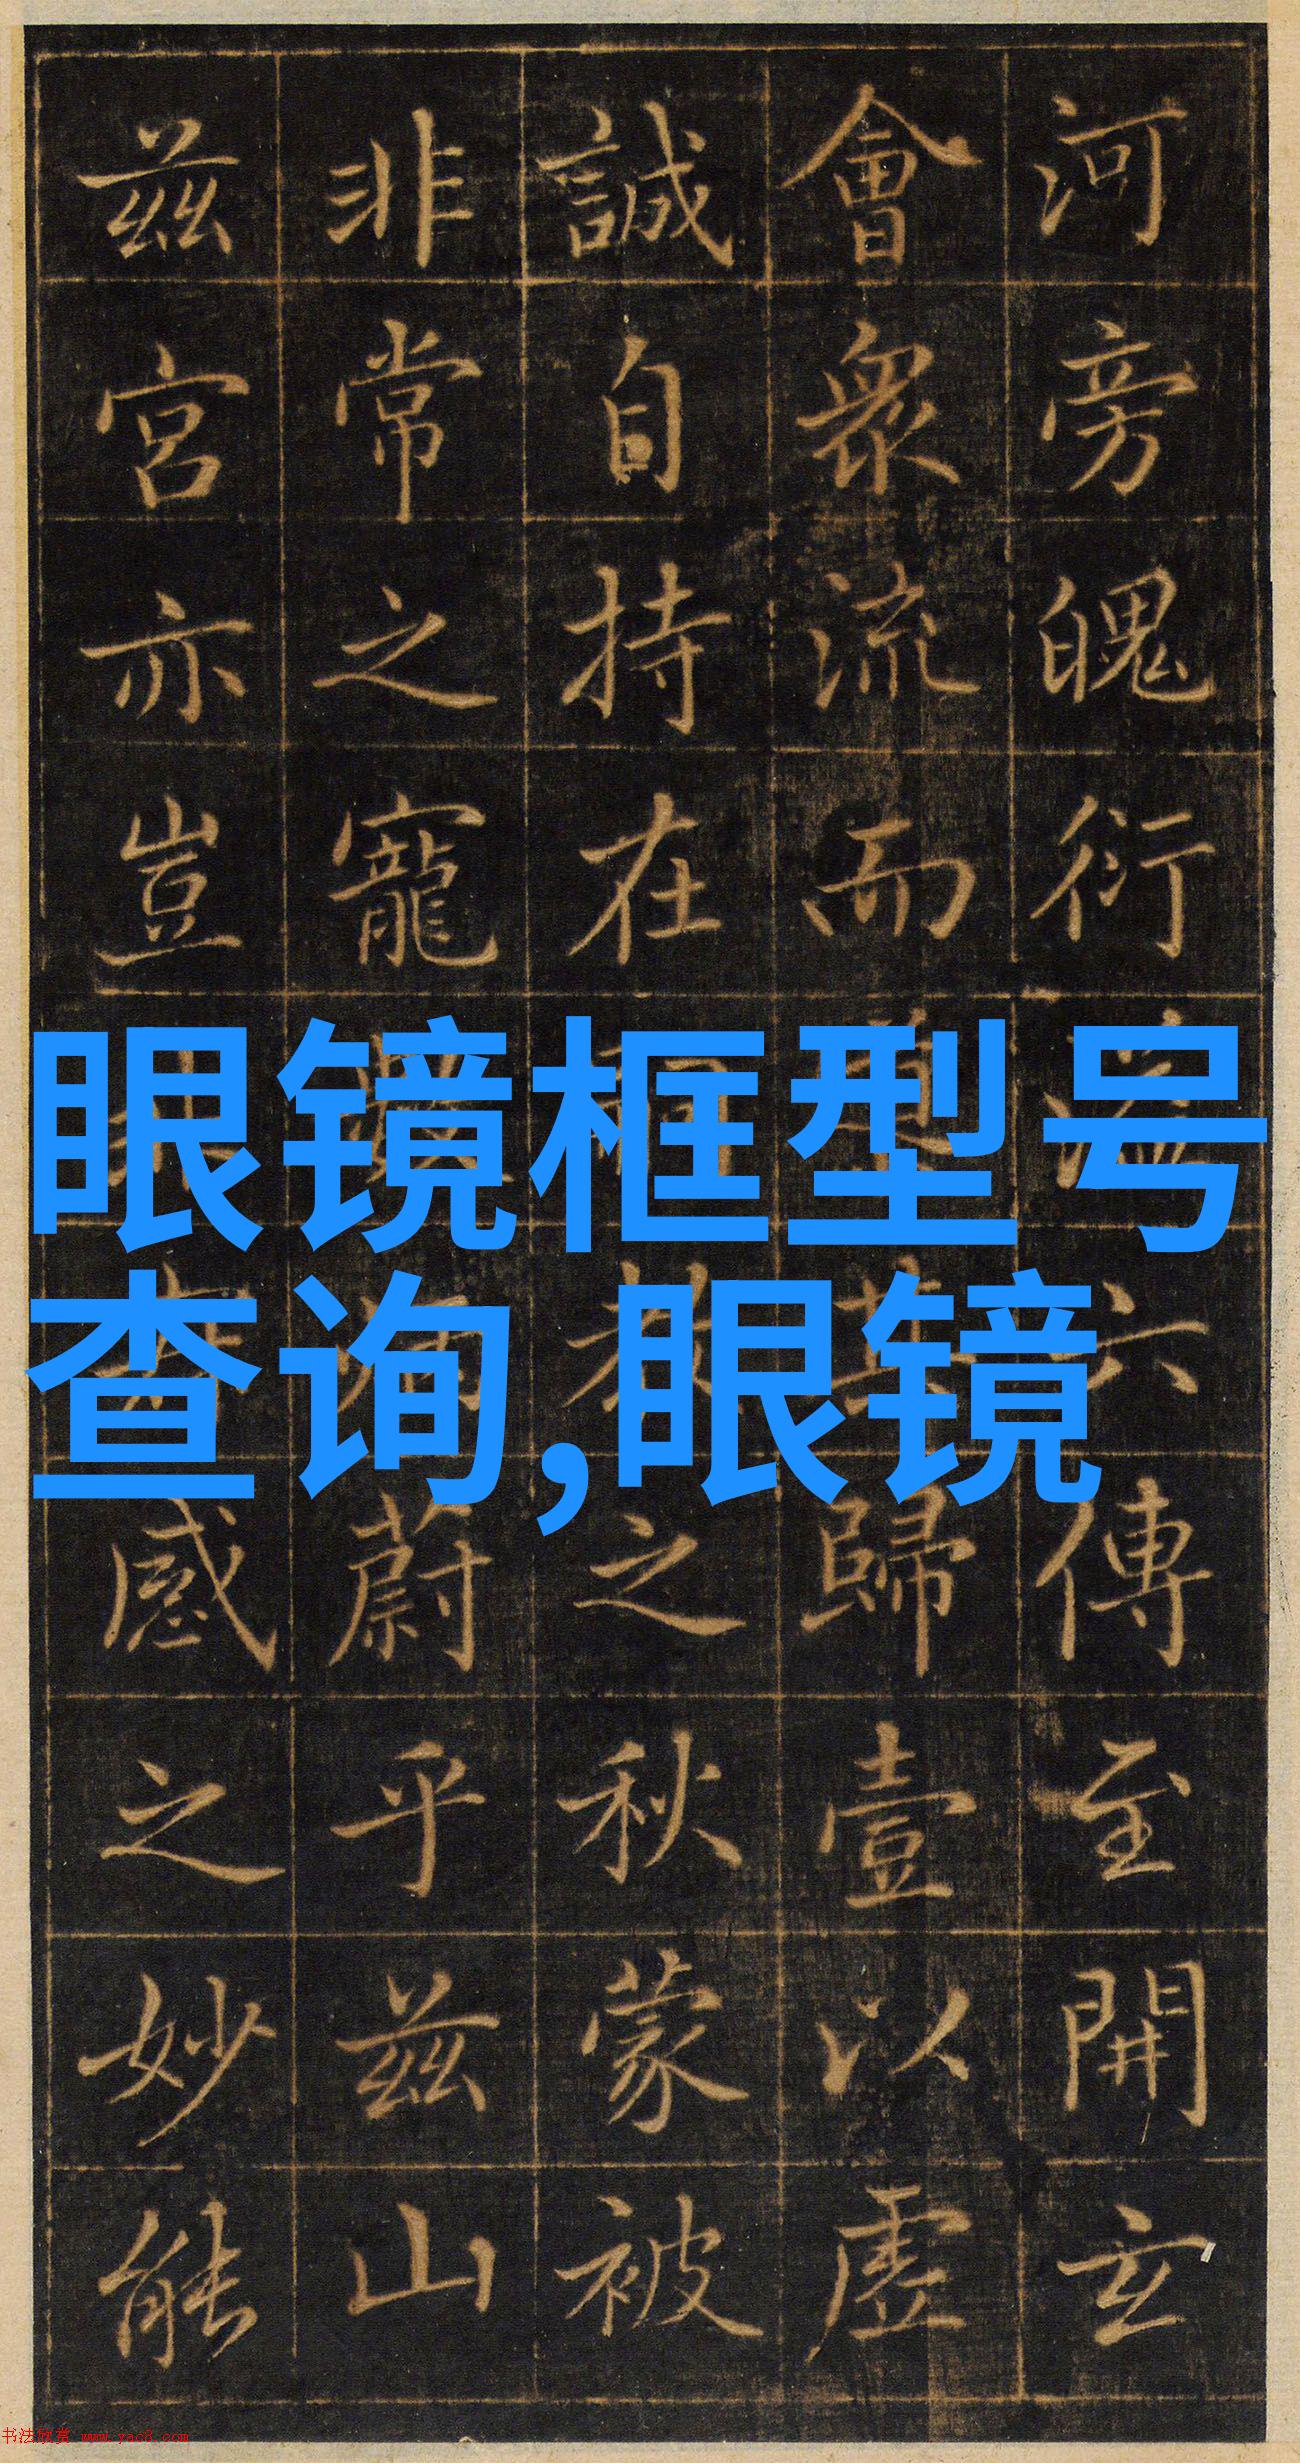 河旁魄衍溢六傳至開玄
會衆流而其歸壹以虛
誠自持在之秋蒙被
非常之寵蔚乎茲山
茲宮亦豈感之妙能
眼镜框型号
查询,眼镜
书法欣赏 www.yac8.com